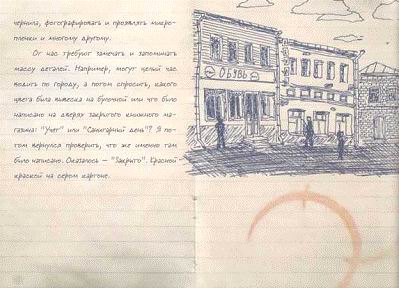 чернила, фотографировать и проявлять микро-
пленки и многому другому.
От нас требуют замечать и запоминать
массу деталей. Например, могут целый час
водить по городу, а потом спросить, какого
цвета была вывеска на булочной или что было
написано на дверях закрытого книжного ма-
газина: "Учет" или "Санитарный день"? Я по-
том вернулся проверить, что же именно там
было написано. Оказалось — "Закрыто". Красной
краской на сером картоне.
ОБУВЬ